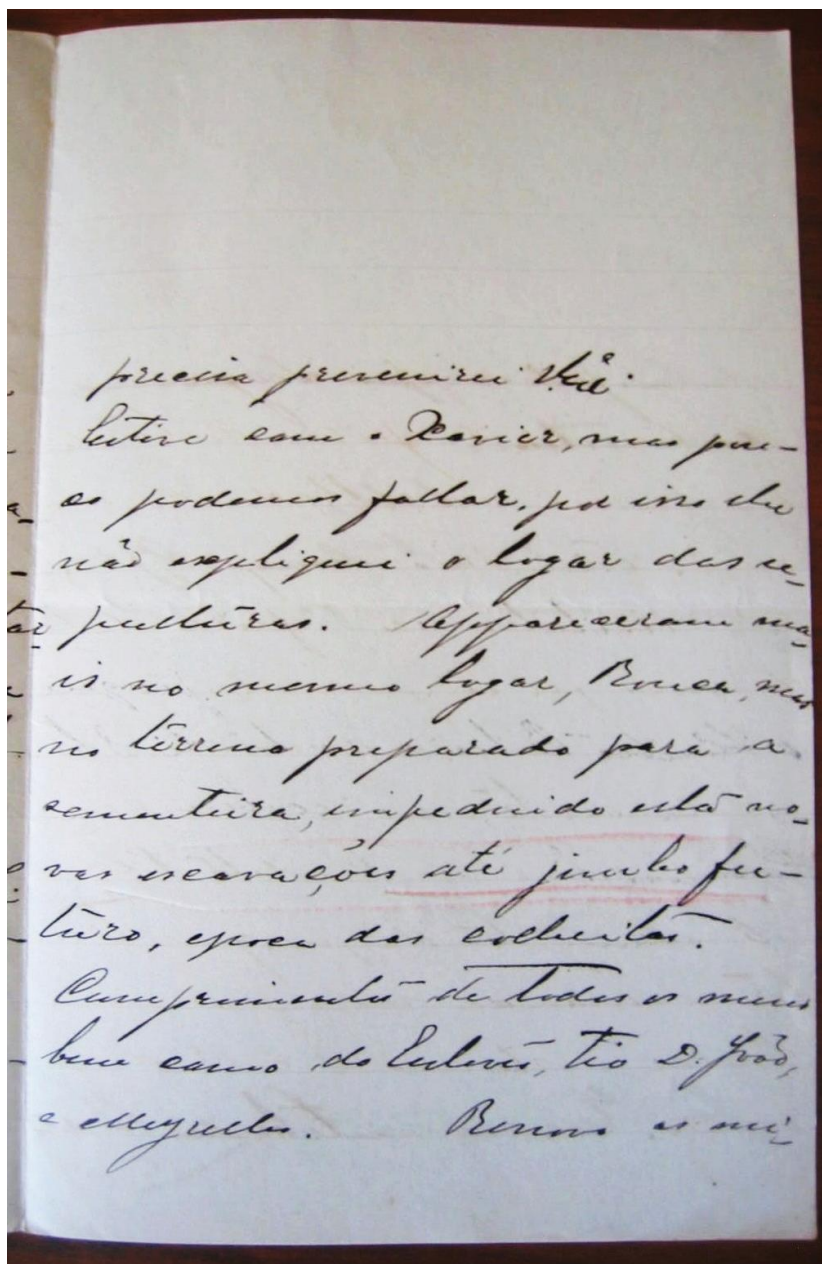 precisa prevenirei V.cê.
Estive com o Xavier, mas pou-
co podemos fallar, por isso lhe
não expliquei o logar das se-
pulturas. Appareceram ma-
is no mesmo logar, Bouca, mas
no terreno preparado para a
sementeira, impedindo isto no-
vas escavações até junho fu-
turo, epoca das colheitas.
Cumprimentos de todos os meus
bem como do Esteves, tio D. João,
e Meyrelles. Renovo as mi-